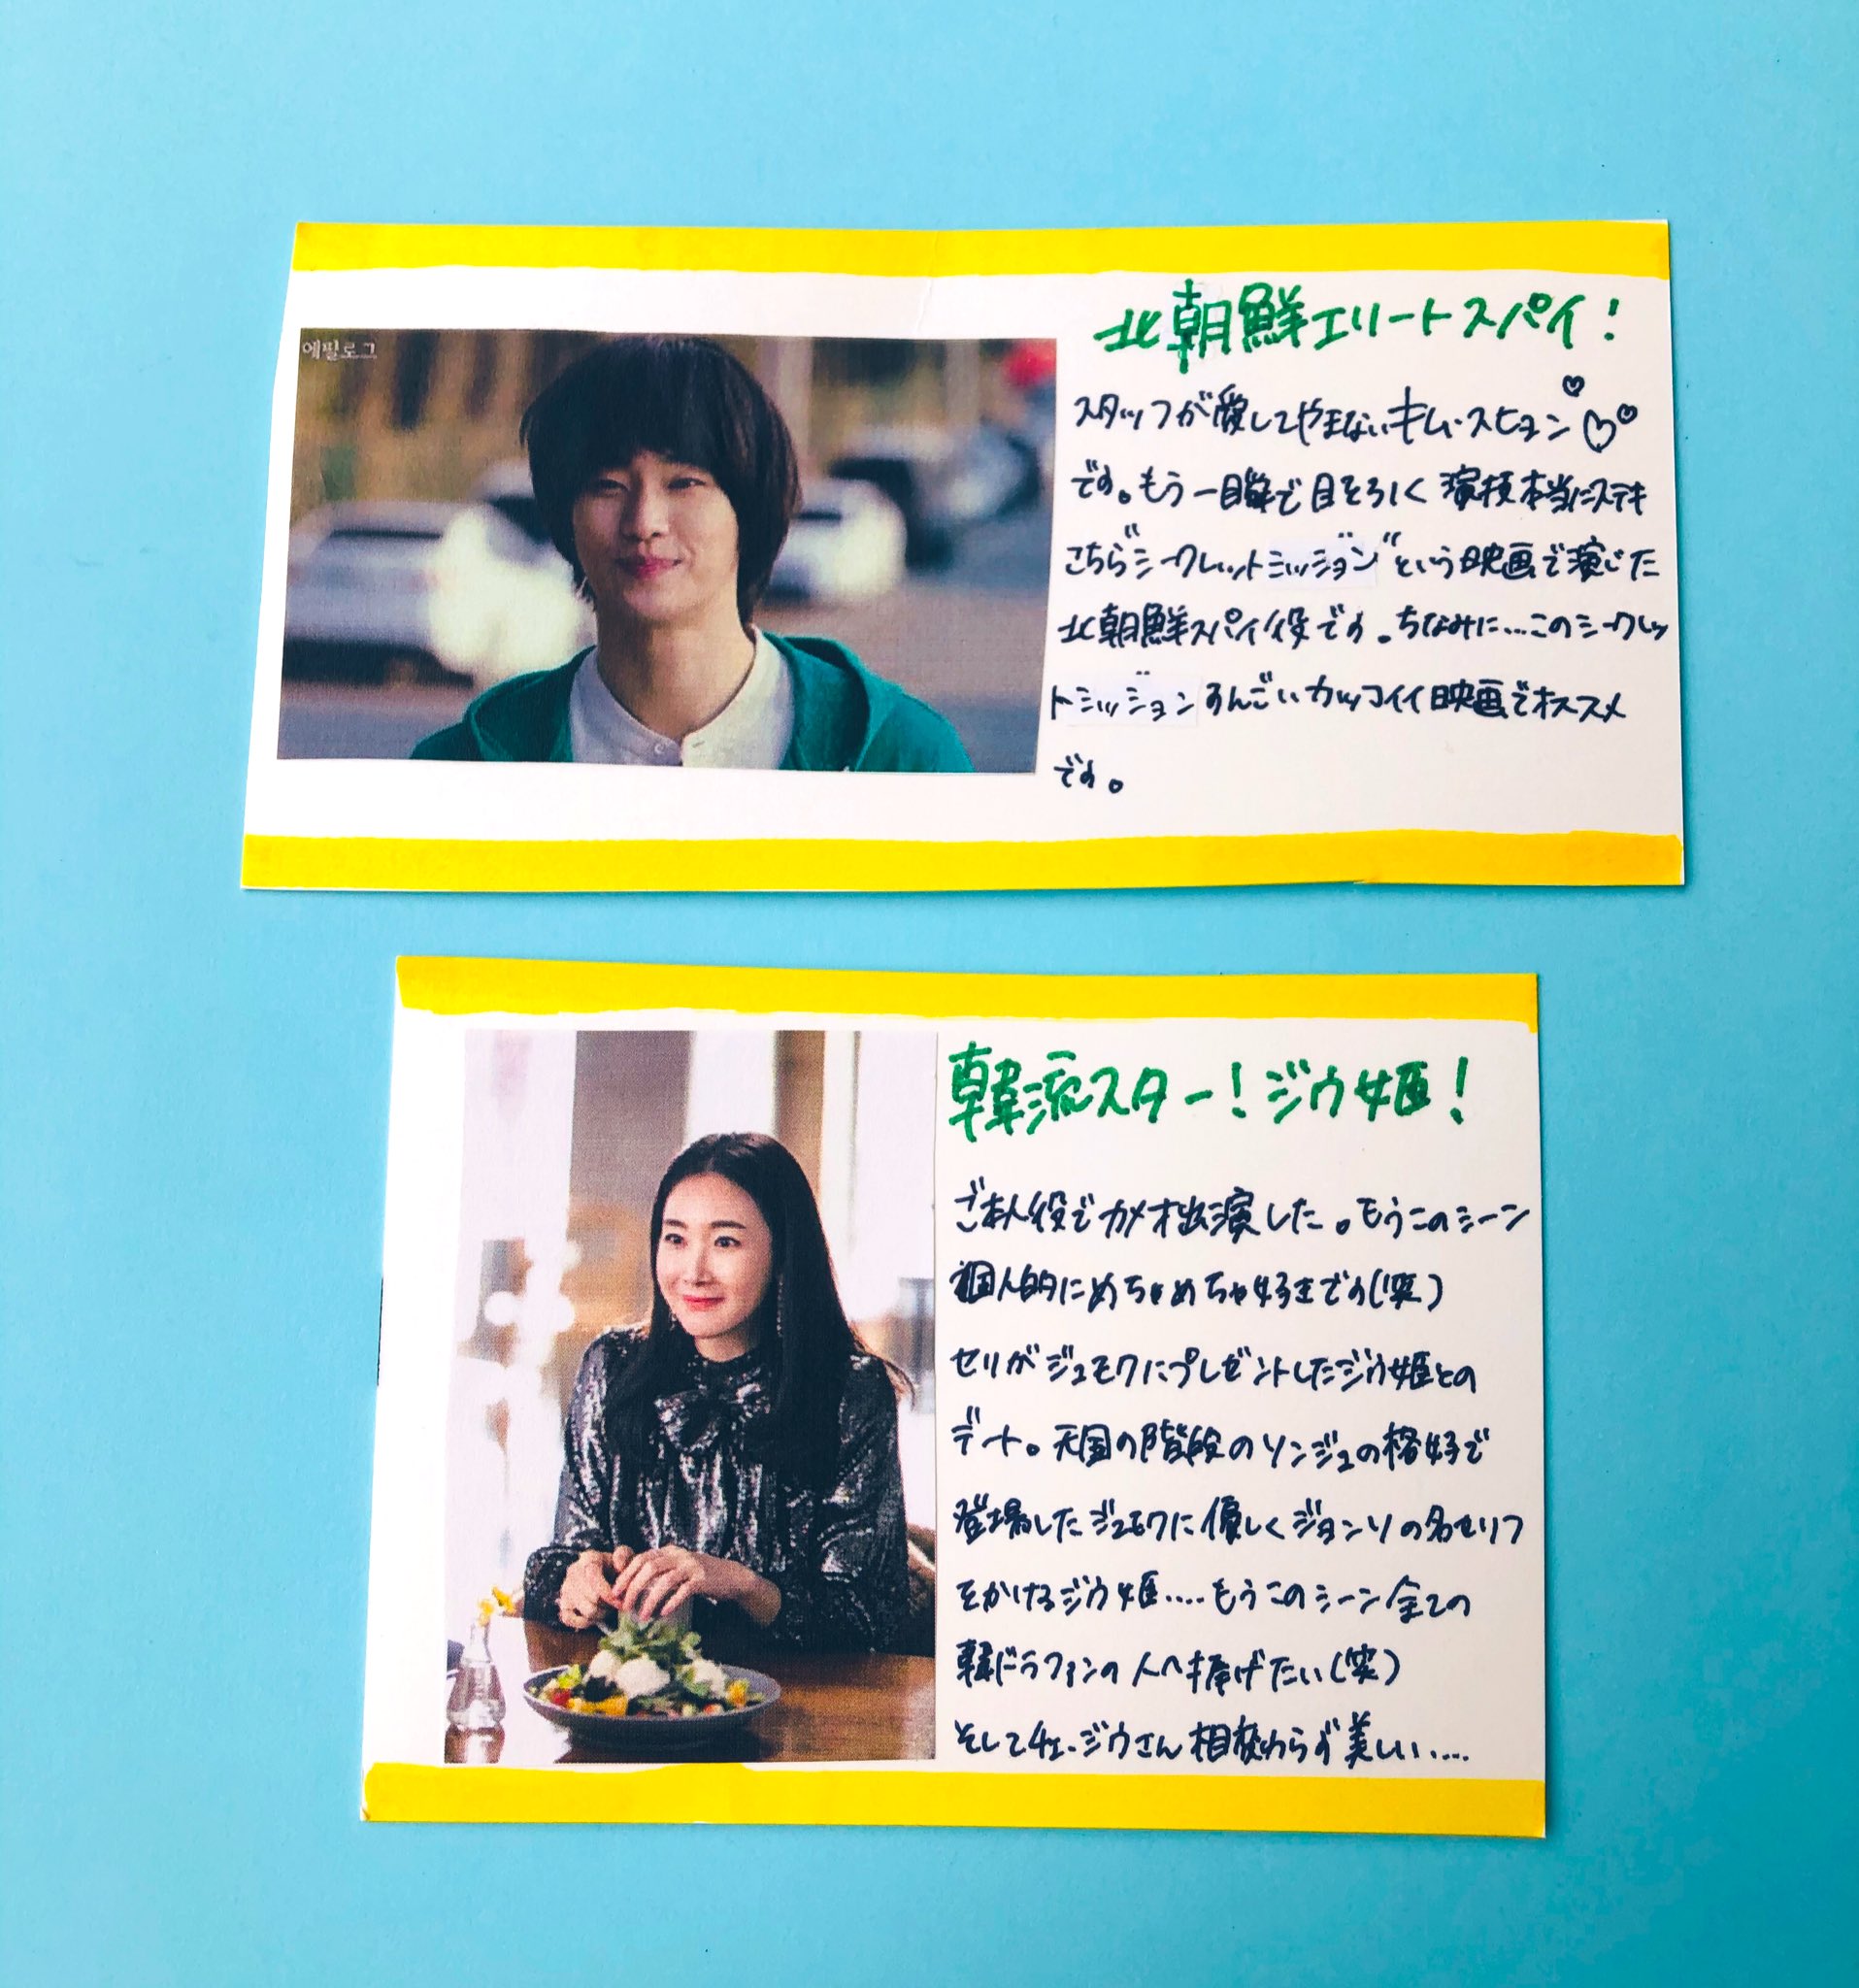 에필로그
北朝鮮エリートスパイ!
スタッフが愛してやまないキム・スヒョン
です。もう一瞬で目をひく演技本当にステキ
こちら"シークレットミッション"という映画で演じた
北朝鮮スパイ役です。ちなみに…このシークレッ
トミッションすんごいカッコイイ映画でオススメ
です。
韓流スター!ジウ姫!
ご本人役でカメオ出演した。もうこのシーン
個人的にめちゃめちゃ好きです(笑)
セリがジュモクにプレゼントしたジウ姫との
デート。天国の階段のソンジュの格好で
登場したジュモクに優しくジョンソの名セリフ
をかけるジウ姫....もうこのシーン全ての
韓ドラファンの人へ捧げたい(笑)
そしてチェ・ジウさん相変わらず美しい....